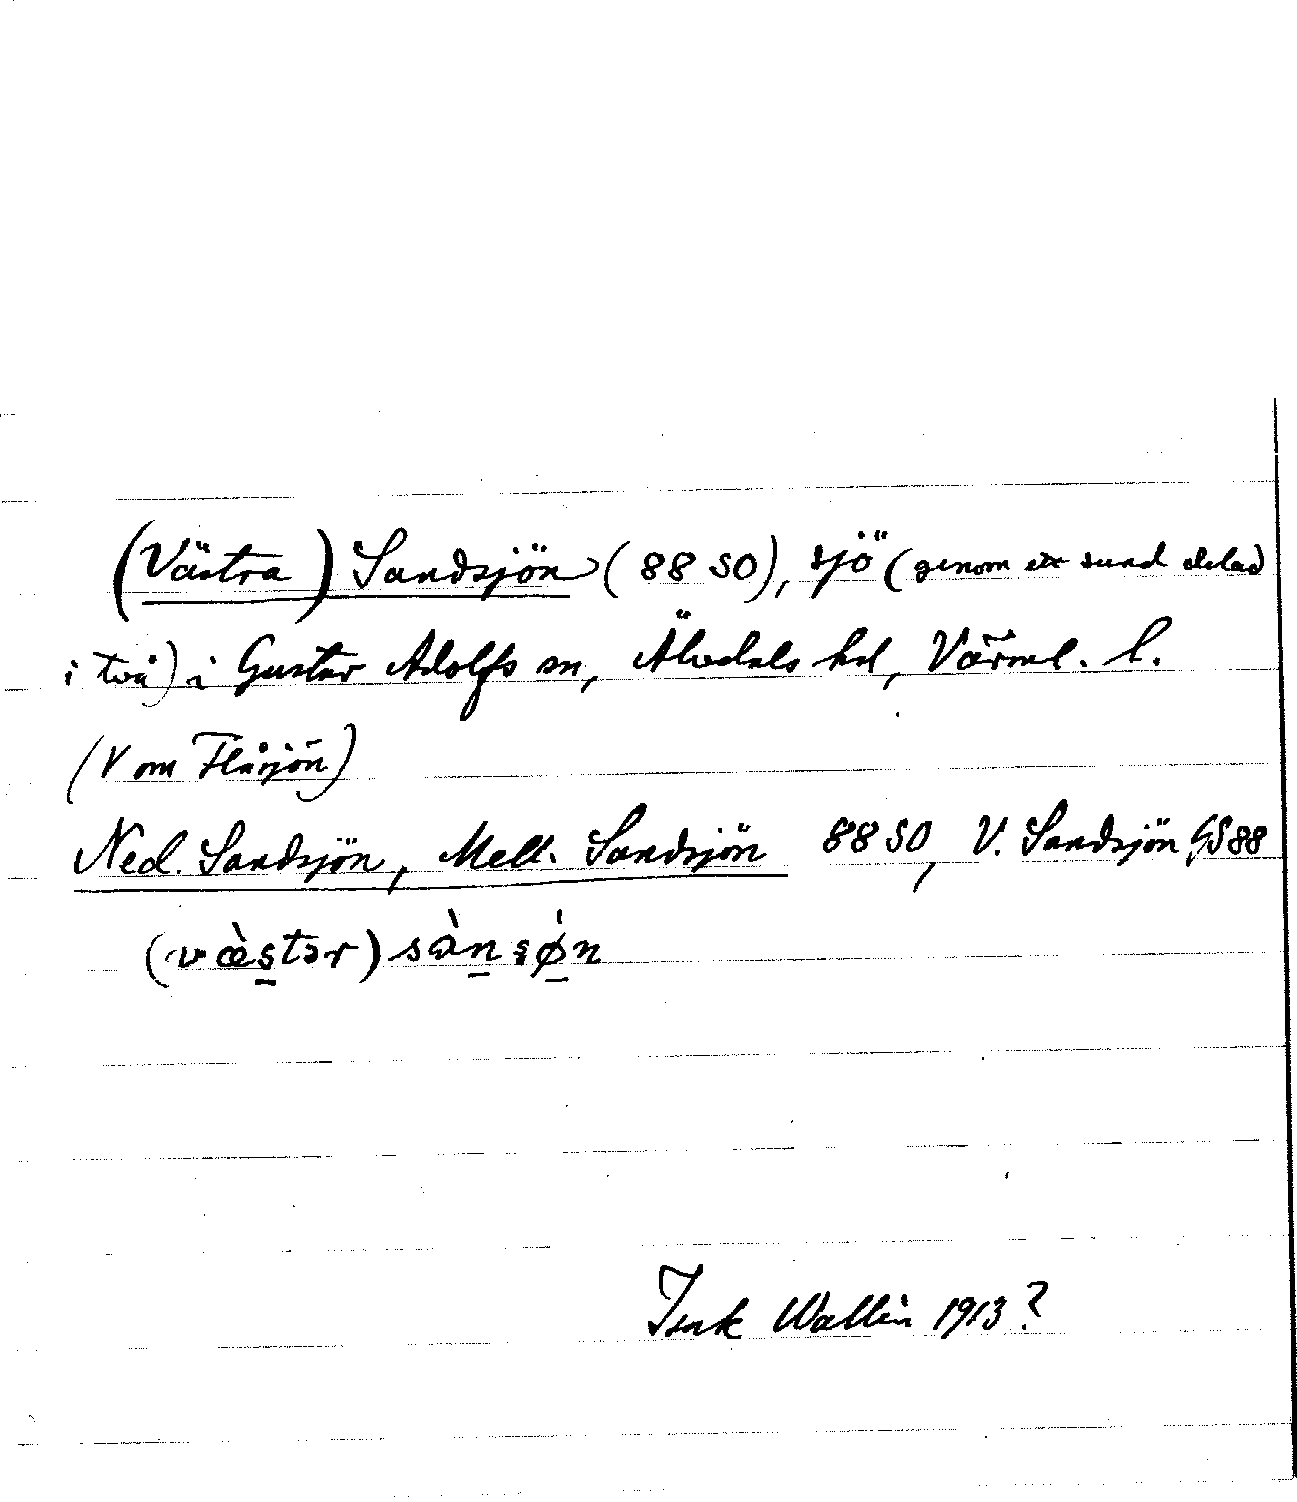 (Västra) Sandsjön (88 SO), sjö (genom ett sund delad
i två) i Gustav Adolfs sn, Älvdals hd, Värml. l.
(V om Flåsjön)
Ned. Sandsjön, Mell. Sandsjön 88 SO, V. Sandsjön GS 88
(væ̀s̱tər) sàṉsǿ̱n
Isak Wallin 1913?